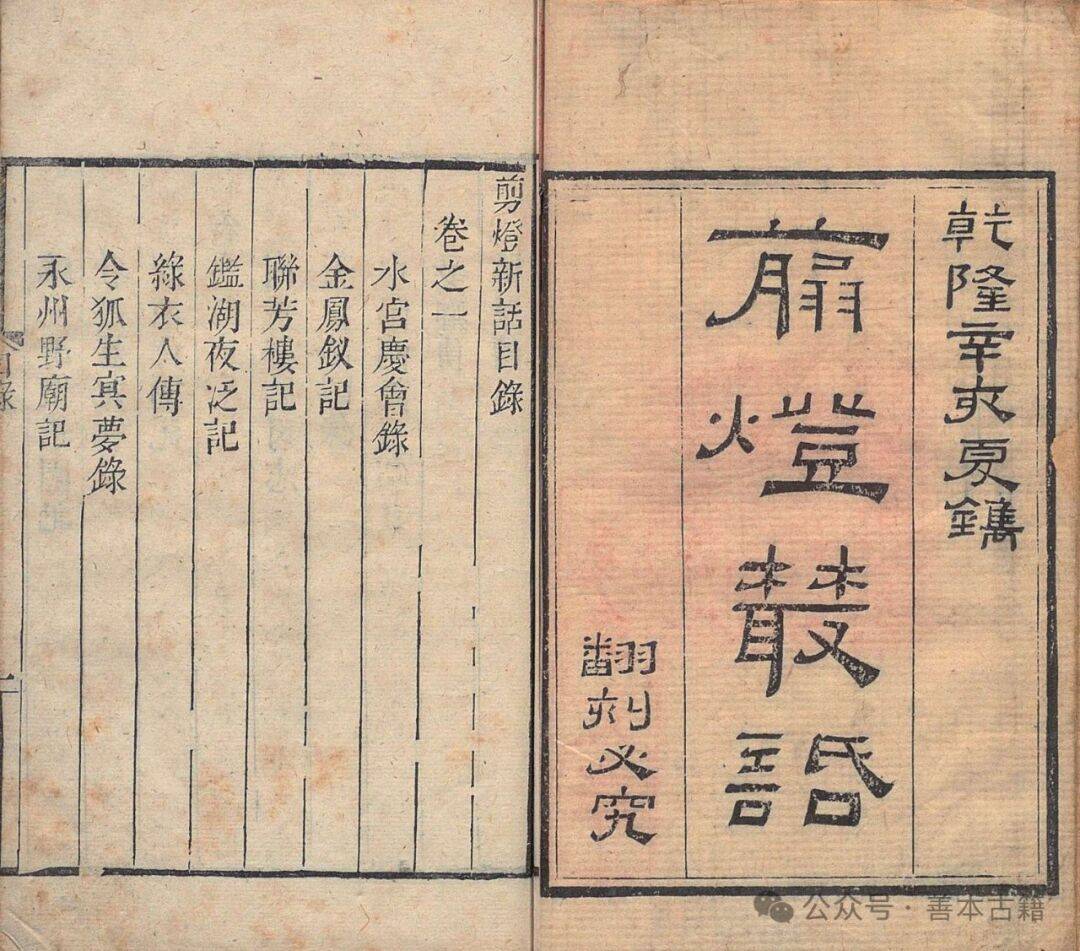 乾隆辛亥夏鐫
翦燈叢話
翻刻必究
剪燈新話目錄
卷之一
水宮慶會錄
金鳳釵記
聯芳樓記
鑑湖夜泛記
綠衣人傳
令狐生冥夢錄
永州野廟記
目錄
一
公众号·善本古籍